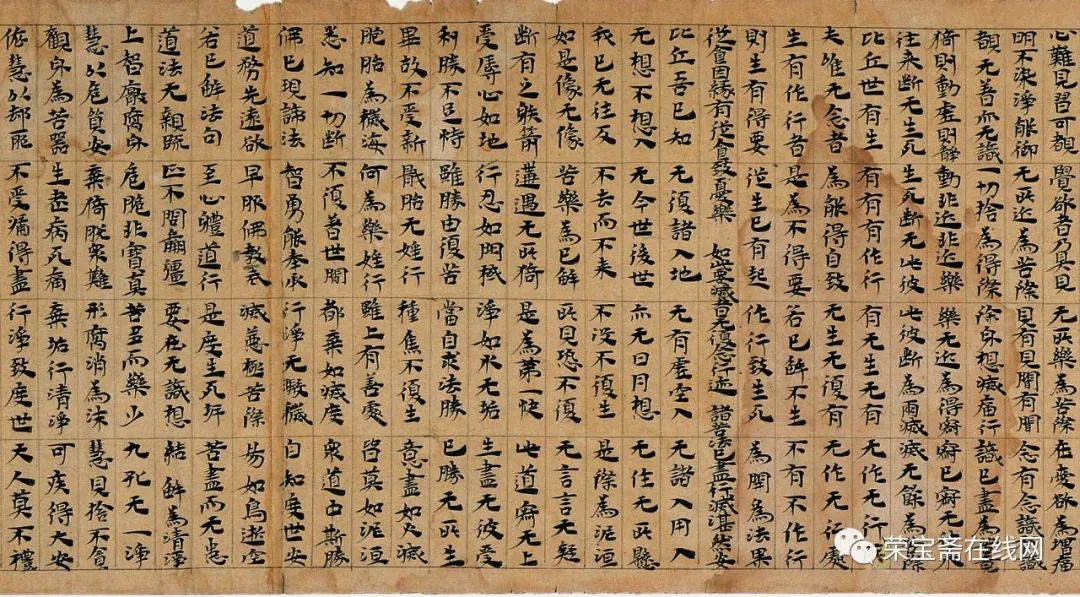 心難見習可覩 覺欲者乃具見 无所樂為苦際 在愛欲為增痛
明不染淨能御 无所近為苦際 見有見聞有聞 念有念識有識
覩无著而无識 一切捨為得際 除身想滅痛行 識已盡為竟
猗則動虛則靜 動非近非近樂 樂无近為得寂 寂已寂无
往來斷无生死 生死斷无此彼 此彼斷為兩滅 滅无餘為除
比丘世有生 有有有作行 有无生无有 无作无行
夫唯无念者 為能得自致 无生无復有 无作无行處
生有作行者 是為不得要 若已解不生 不有不作行
則生有得要 從生已有起 作行致生死 為開為法果
從食因緣有 從食致憂樂 如此要滅者 无復念行迹 諸苦法已盡 行滅湛然安
比丘吾已知 无復諸入地 无有虛空入 无諸入用入
无想不想入 无今世後世 亦无日月想 无往无所懸
我已无往反 不去而不來 不沒不復生 是際為泥洹
如是像无像 苦樂為已解 所見恐不復 无言言无疑
斷有之躲箭 遘遇无所猗 是為第一快 此道寂无上
受辱心如地 行忍如門閾 淨如水无垢 生盡无彼受
利勝不足恃 雖勝由復苦 當自求法勝 已勝无所生
畢故不受新 厭胎无婬行 種焦不復生 意盡如火滅
胞胎為穢海 何為樂婬行 雖上有善處 皆莫如泥洹
悉知一切斷 不復著世間 都棄如滅度 衆道中斯勝
佛已現諦法 智勇能奉承 行淨无瑕穢 自知度世安
道務先遠欲 早服佛教戒 滅惡極苦際 易如鳥逝空
若已解法句 至心體道行 是度生死岸 苦盡而无患
道法无親疏 正不問羸彊 要在无識想 結解為清淨
上智饜腐身 危脆非實真 苦多而樂少 九孔无一淨
慧以危貿安 棄猗脫衆難 形腐消為沫 慧見捨不貪
觀身為苦器 生老病死痛 棄垢行清淨 可疾得大安
依慧以却邪 不受漏得盡 行淨致度世 天人莫不禮
荣宝斋在线网